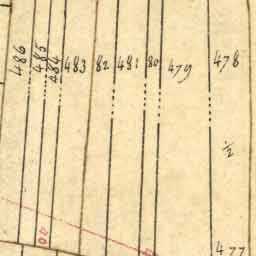 486
485
484
483
82
481
80
479
478
½
477